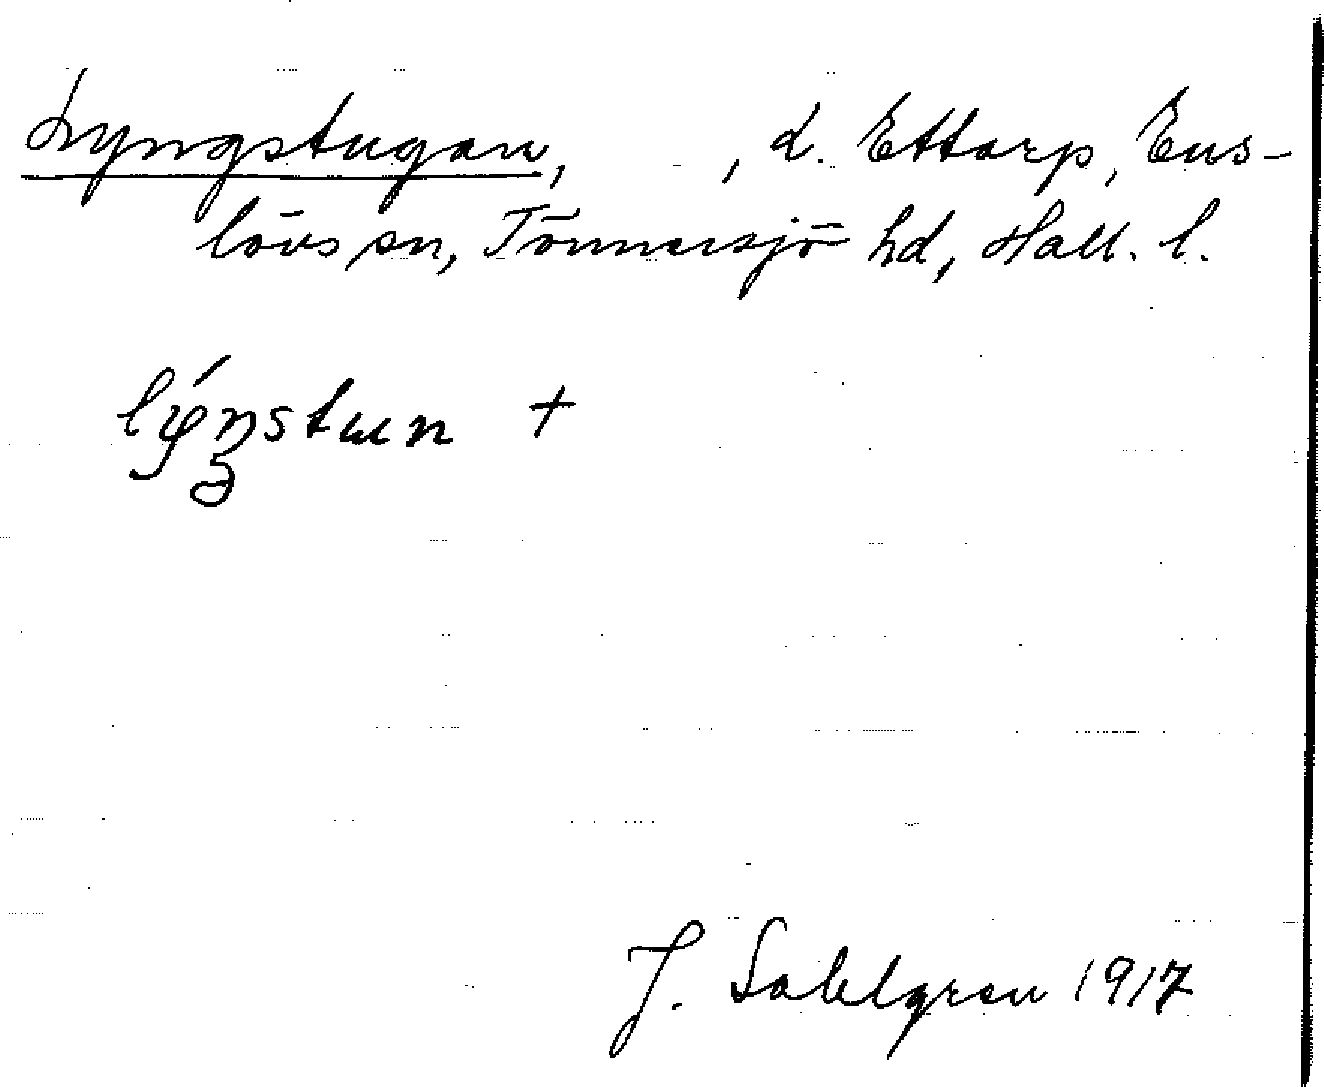 Lyngstugan, , L. Ettarp, Ens-
lövs sn, Tönnersjö hd, Hall. l.
+
J. Sahlgren 1917